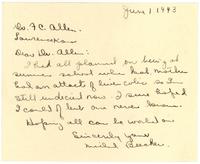 June 1 1943
Dr. F. C. Allen.
Lawrence Kan
Dear Dr. Allen:
I had all planned on being at
summer school when had mother
had an attack of so I'm
still undecided now I sure hoped
I could of but one never knows.
Hoping all can be told on
Sincerely yours
Becker.